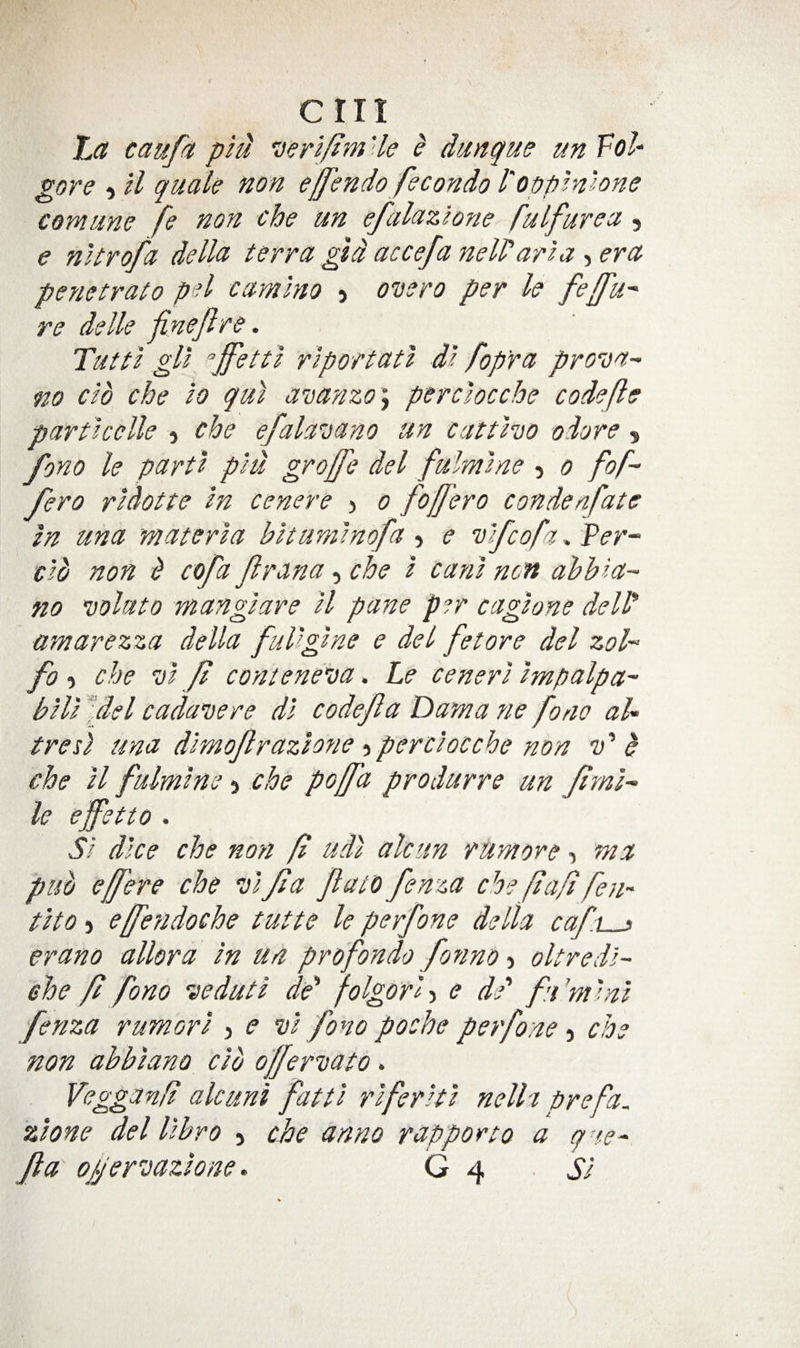 CIII
La cauſa più veriſimile è dunque un Fol-
gore, il quale non eſſendo ſecondo l'oppinione
comune ſe non che un eſalazione ſulfurea,
e nitroſa della terra già acceſa nell'aria, era
penetrato pel camino, overo per le feſſu-
re delle fineſtre.
Tutti gli effetti riportati di ſopra prova-
no ciò che io quì avanzo; perciocche codeſte
particelle, che eſalavano un cattivo odore,
ſono le parti più groſſe del fulmine, o foſ-
ſero ridotte in cenere, o foſſero condenſate
in una materia bituminoſa, e viſcoſa. Per-
ciò non è coſa ſtrana, che i cani non abbia-
no voluto mangiare il pane per cagione dell'
amarezza della fuligine e del fetore del zol-
fo, che vi ſi conteneva. Le ceneri impalpa-
bili del cadavere di codeſta Dama ne ſono al-
tresì una dimoſtrazione, perciocche non v' è
che il fulmine, che poſſa produrre un ſimi-
le effetto.
Si dice che non ſi udì alcun rumore, ma
può eſſere che vi ſia ſtato ſenza che ſiaſi ſen-
tito, eſſendoche tutte le perſone della caſa
erano allora in un profondo ſonno, oltredi-
che ſi ſono veduti de' folgori, e de' fulmini
ſenza rumori, e vi ſono poche perſone, che
non abbiano ciò oſſervato.
Vegganſi alcuni fatti riferiti nella prefa-
zione del libro, che anno rapporto a que-
ſta oſſervazione. G 4 Si